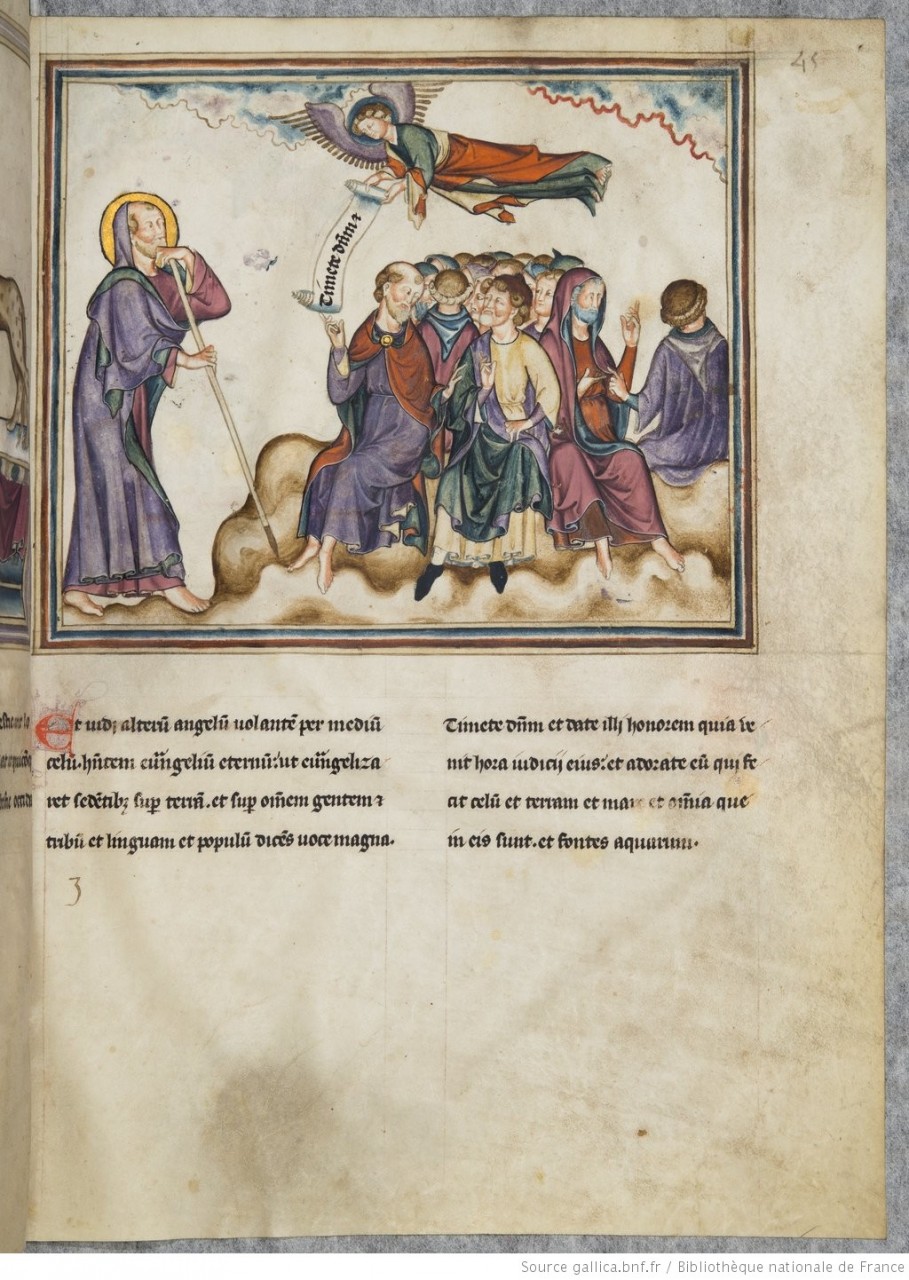 45
Timete dñm ⁊
Et uidj alterũ angelũ uolantẽ per mediũ
celũ. hñtem euñgeliũ eternũ: ut euñgeliza
ret sedẽtibꝫ sup̱ terrã. et sup̱ om̃em gentem ⁊
tribũ et linguam et populũ dicẽs uoce magna.
3
Timete dñm et date illj honorem quia ve
nit hora iudicij eius: et adorate eũ qui fe
cit celũ et terram et mare et om̃ia que
in eis sunt. et fontes aquarum.
Source gallica.bnf.fr / Bibliothèque nationale de France